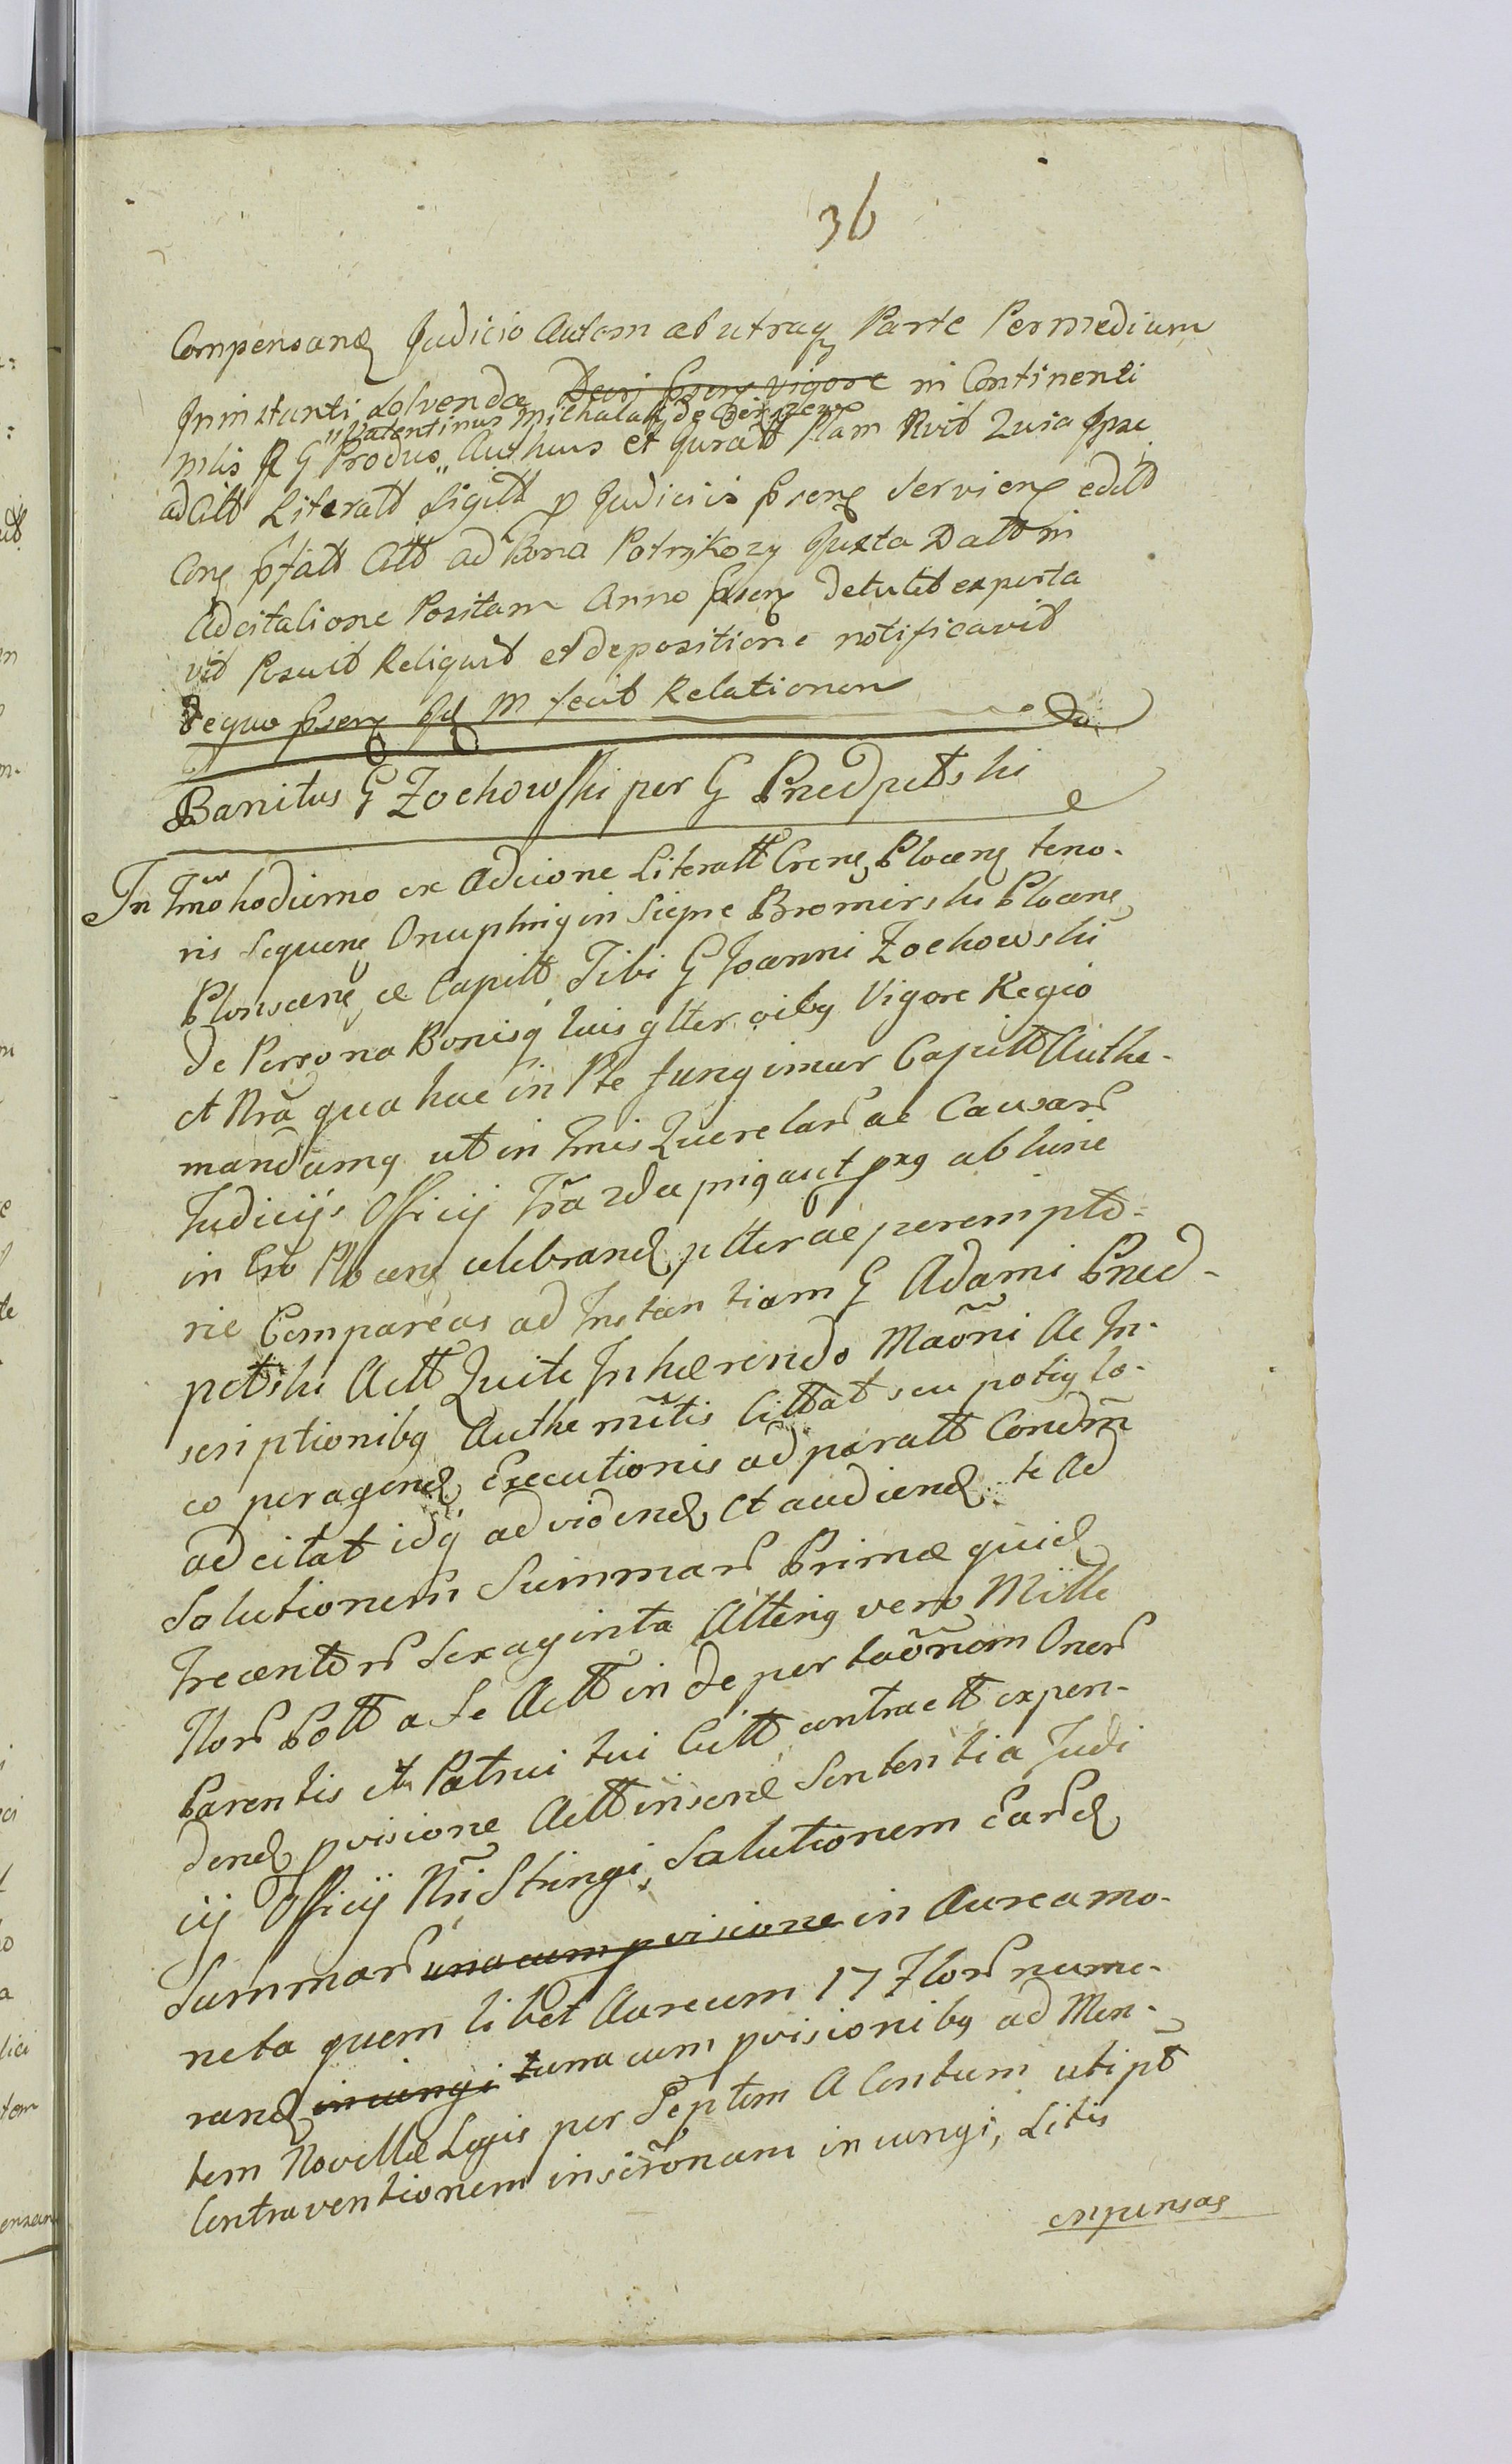 36
Compensand Judicio Autem ab utraq Parte Per medium
In instanti solvendae Deri psenz vigore in Continenti
"Valentinus Michalak de
Mlis R G Produs " Authus et Juratt Plam Rvit Quia Ipse
ad Citt Literatt Sigitt p Judiciis psenz Servienz editt
Conz pfatt Citt ad Bona Potrykozy Juxta Datt in
Adcitatione Positam Anno psenz detulit exporta
vit Posuit Reliquit et depositione notificavit
De quo psenz Jd M fecit Relationem
Banitus G Zochowski per G Przedpełski
In Tmo hodierno ex Adcione Literatt Crens Plocens teno-
ris Sequens Onuphrig in Siepre Bromirski Plocens
Plonscens ce Capitt Tibi G Joanni Zochowski
de Persona Bonisq tuis gtter oibg Vigore Regio
et Nra qua hac in Pte fungimur Capitt Authe-
mandamg ut in Tmis Querelar ac Causar
Judicijs Officij Nra 2da prig aut pxg ab hinc
in Cro Plocens celebrand ptter ac perempto-
rie Compareas ad Instantiam G Adami Przed-
pełski Actt Quite Inhaerendo Maoni Ac In-
scriptionibg Authe mtis Cittat seu potig lo-
co peragend Executionis ad paratt Condm
ad citat idq ad vidend et audiend te ad
Solutionem Summar Primae quid
Trecentor Sexaginta Alterig vero Mille
Flor Poll a Te Actt in de per taonem Oner
Parentis et Patrui tui Citt contractt expen-
dend pvisione Actt inserv Sententia Judi
cij Officij Nri Stringi, Solutionem Eard
Summar una cum pvisione in Aurea mo-
neta quem libet Aureum 17 Flor nume-
rand iniungi una cum pvisionibg ad Men-
tem Novellae Legis per Septem A Centum uti pt
Contraventionem inscronam iniungi, Litis
expensas